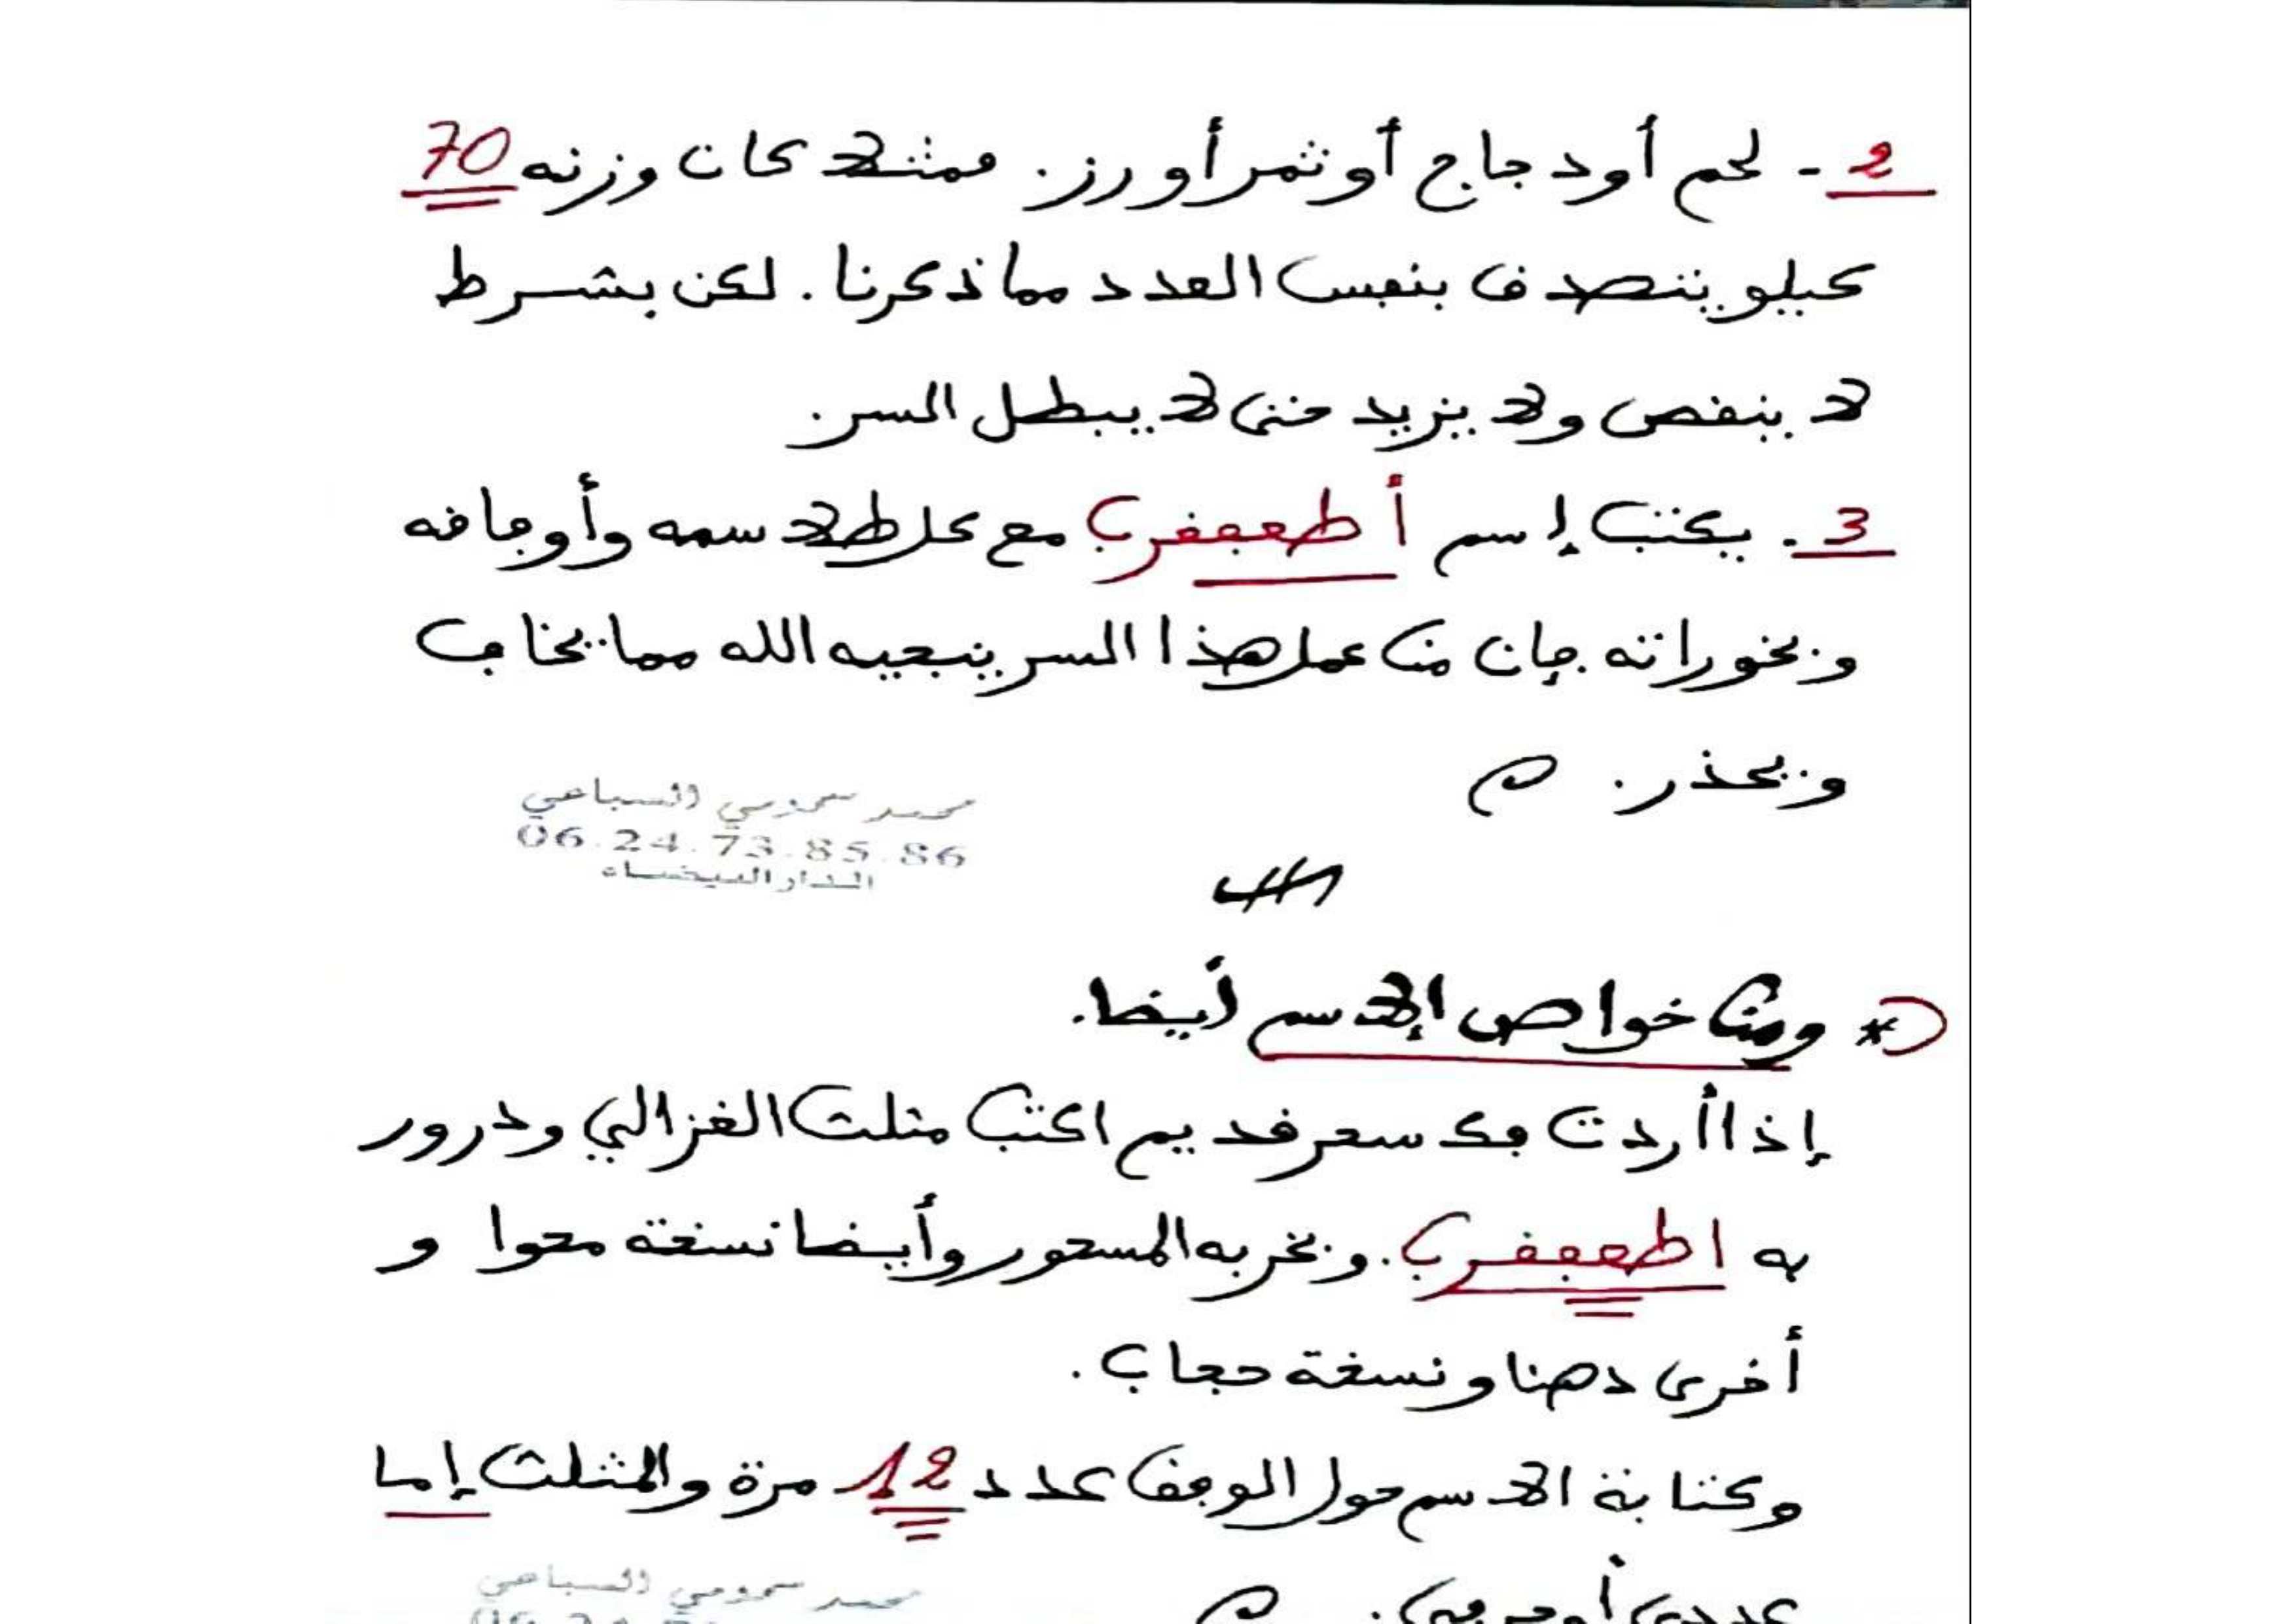 2 - لحم أو دجاج أو ثمر أو رز. فمثلا كان وزنه 70
كيلو يتصدق بنفس العدد مما ذكرنا. لكن بشرط
لا ينقص ولا يزيد حتى لا يبطل السر.
3 - يكتب إسم أطعفقرب مع كل طلاسمه وأوفاقه
وبخوراته فإن من عمل هذا السر ينجيه الله مما يخاف
ويحذر.
محمد السباعي
06.24.73.85.86
الدار البيضاء
* ومن خواص الإسم أيضا.
إذا أردت فك سحر قديم اكتب مثلث الغزالي ودرور
به اطعفقرب. وبخر به المسحور وأيضا نسخة محوا و
أخرى دهنا ونسخة حجاب.
وكتابة الاسم حول الوفق عدد 12 مرة والمثلث إما
عددي أو حرفي.
محمد السباعي